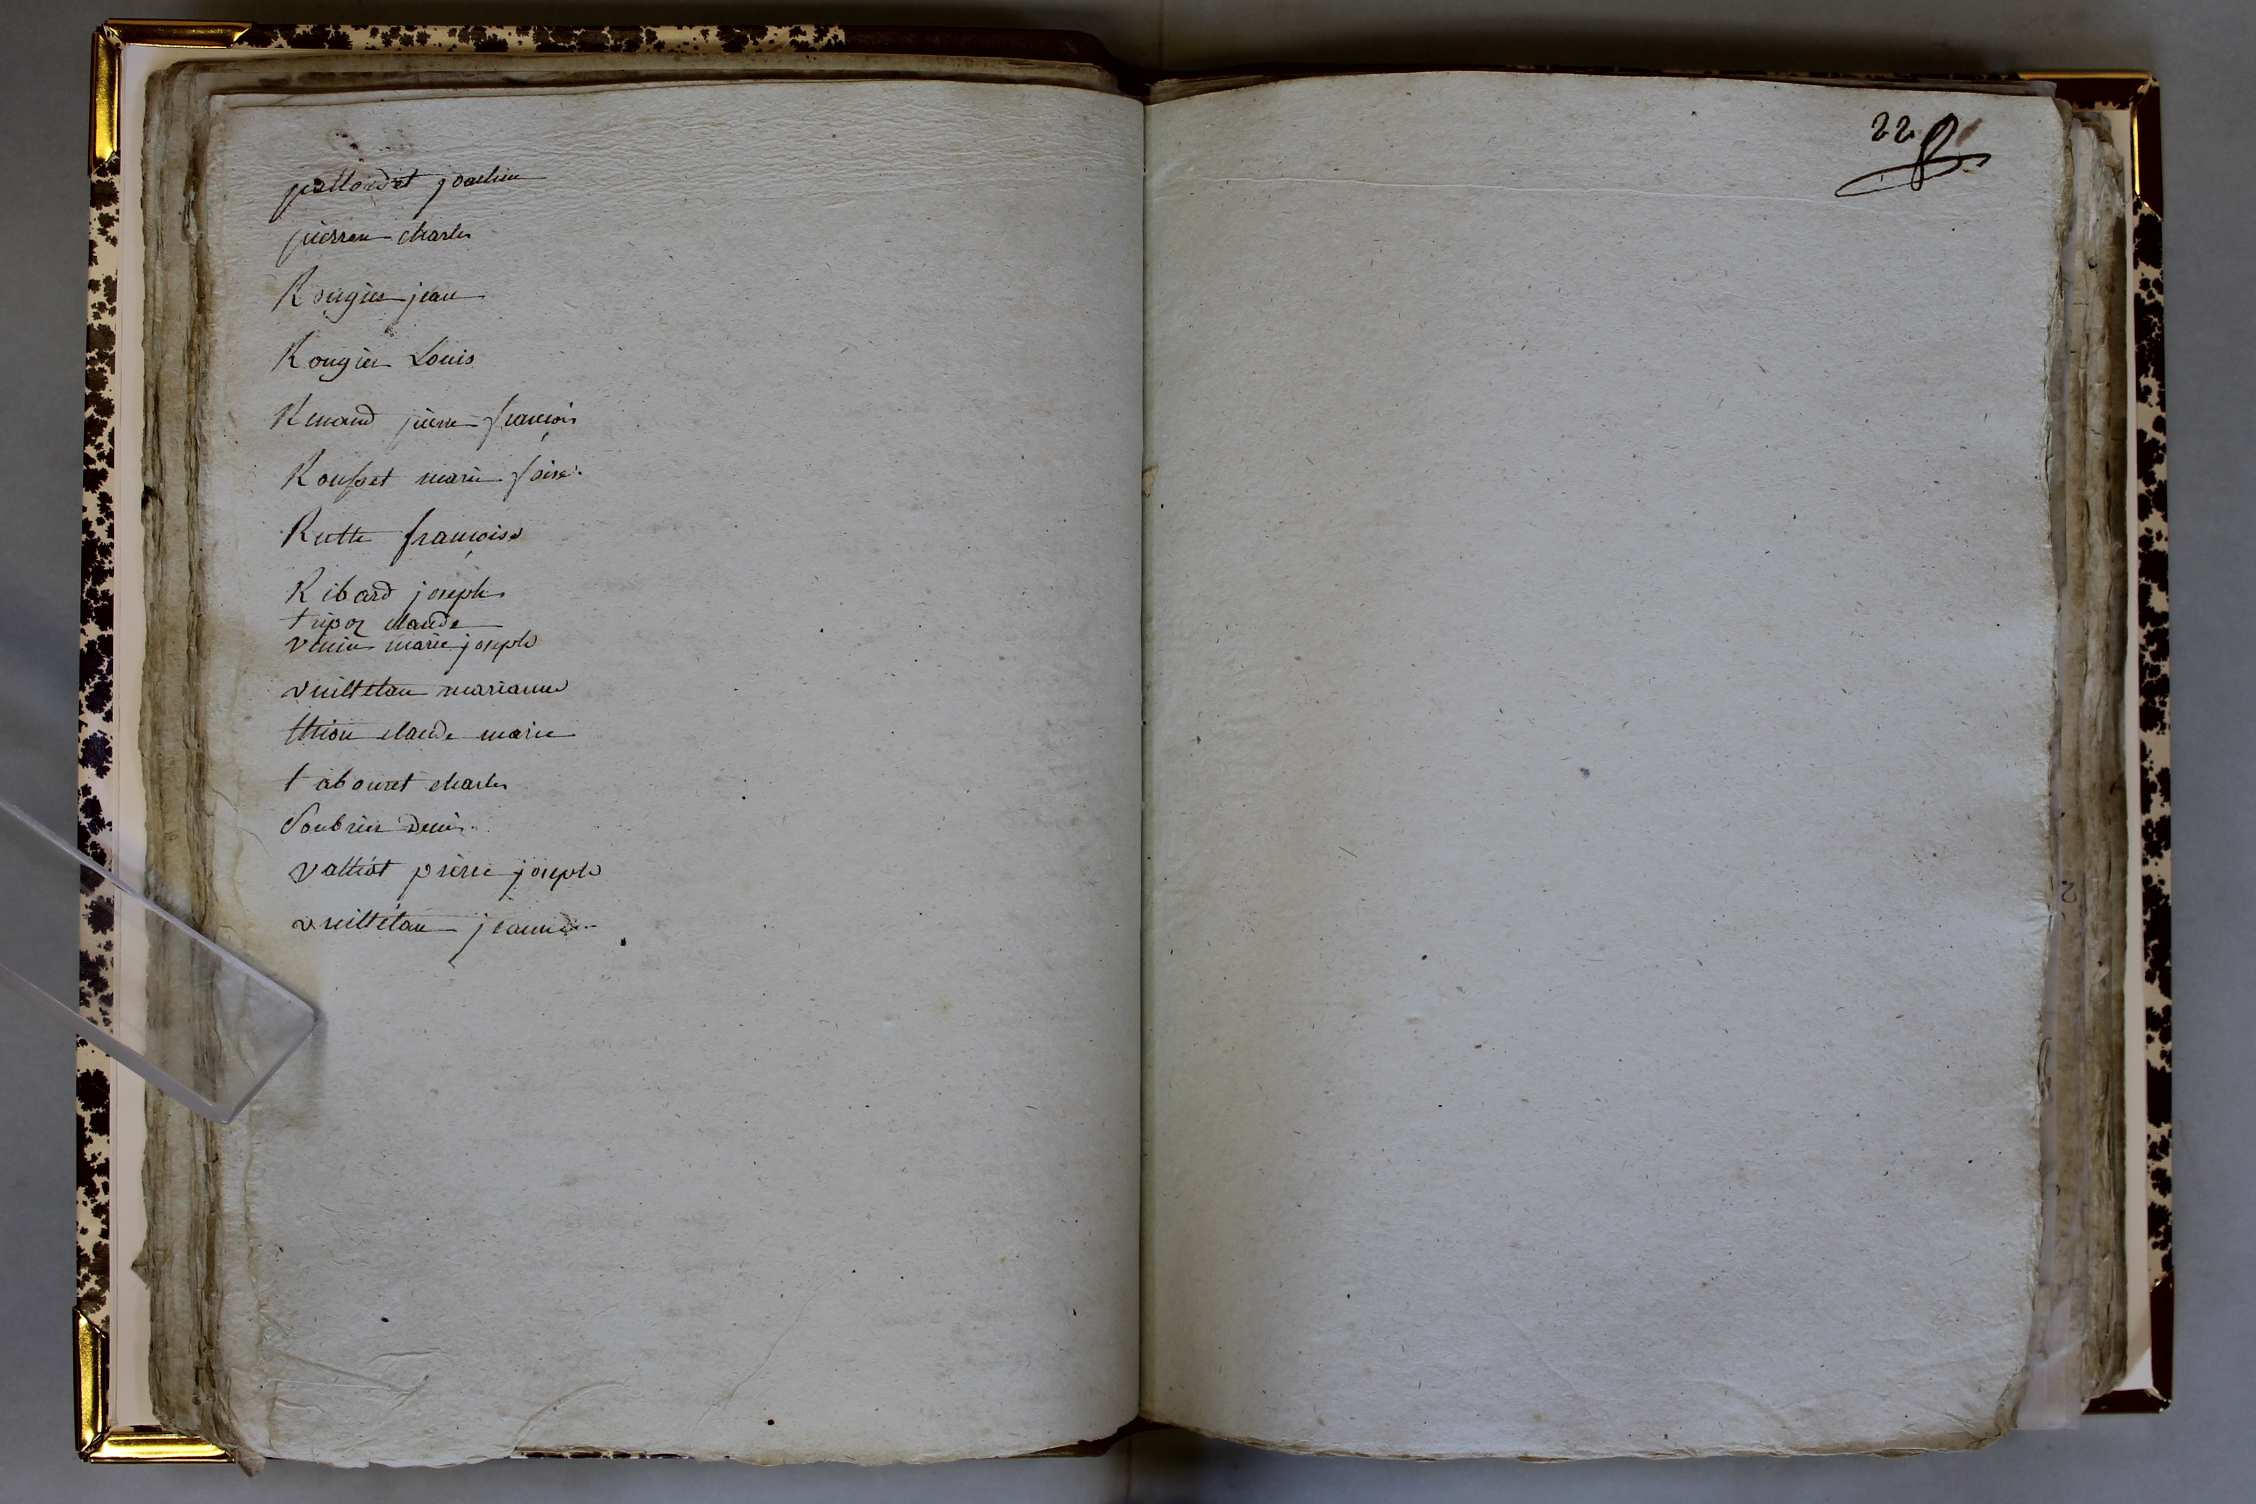 pattoudet joachin
pierren charles
Rougier jean
Rougier Louis
Renaud pierre françois
Rousset marie foise
Rutte françoise
Ribard joseph
tripoz claude
marie joseph
vuilletan marianne
thion claude marie
tabouret charles
Soubrier Denis
valtiot pierre joseph
vuilletan jeanne
22